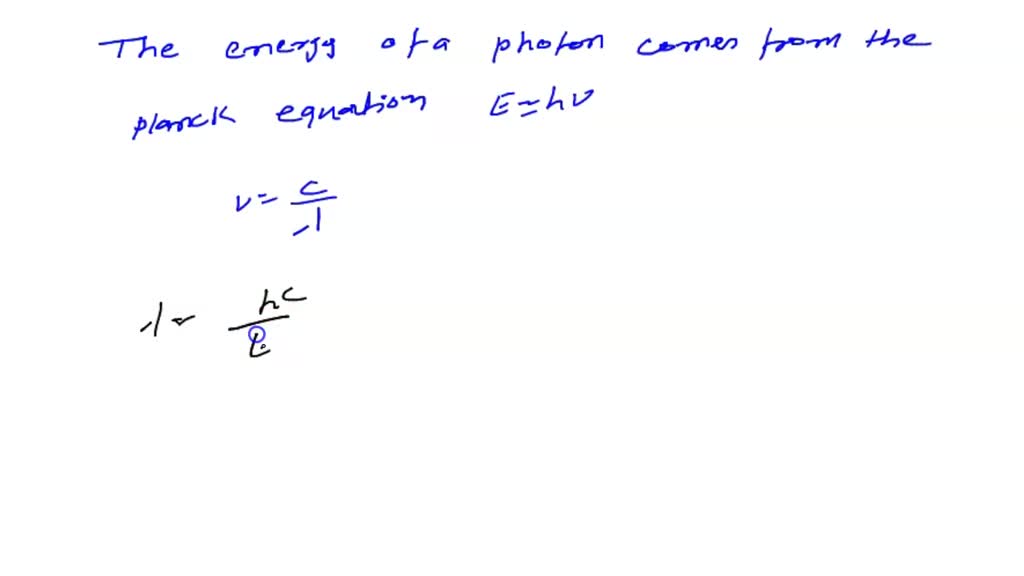 The energy of a photon comes from the
planck equation E=hν
ν = c/λ
λ = hc/E